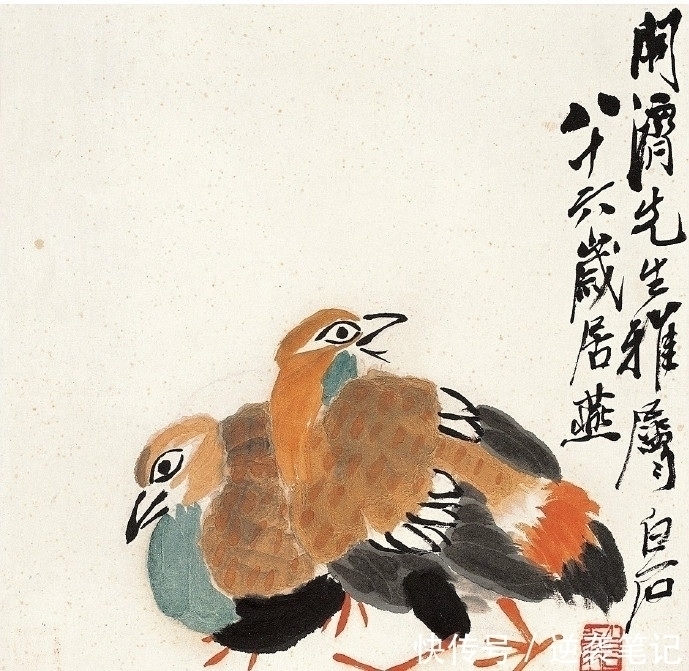 開濟先生雅屬 白石
八十六歲居燕
快传号 / 逆袭笔记